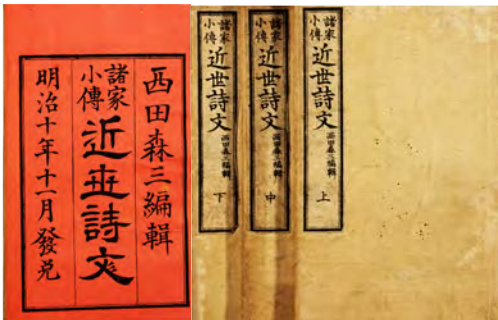 西田森三編輯
諸家
小傳
近世詩文
明治十年十一月發兌
諸家
小傳
近世詩文
西田森三編輯
上
諸家
小傳
近世詩文
西田森三編輯
中
諸家
小傳
近世詩文
西田森三編輯
下